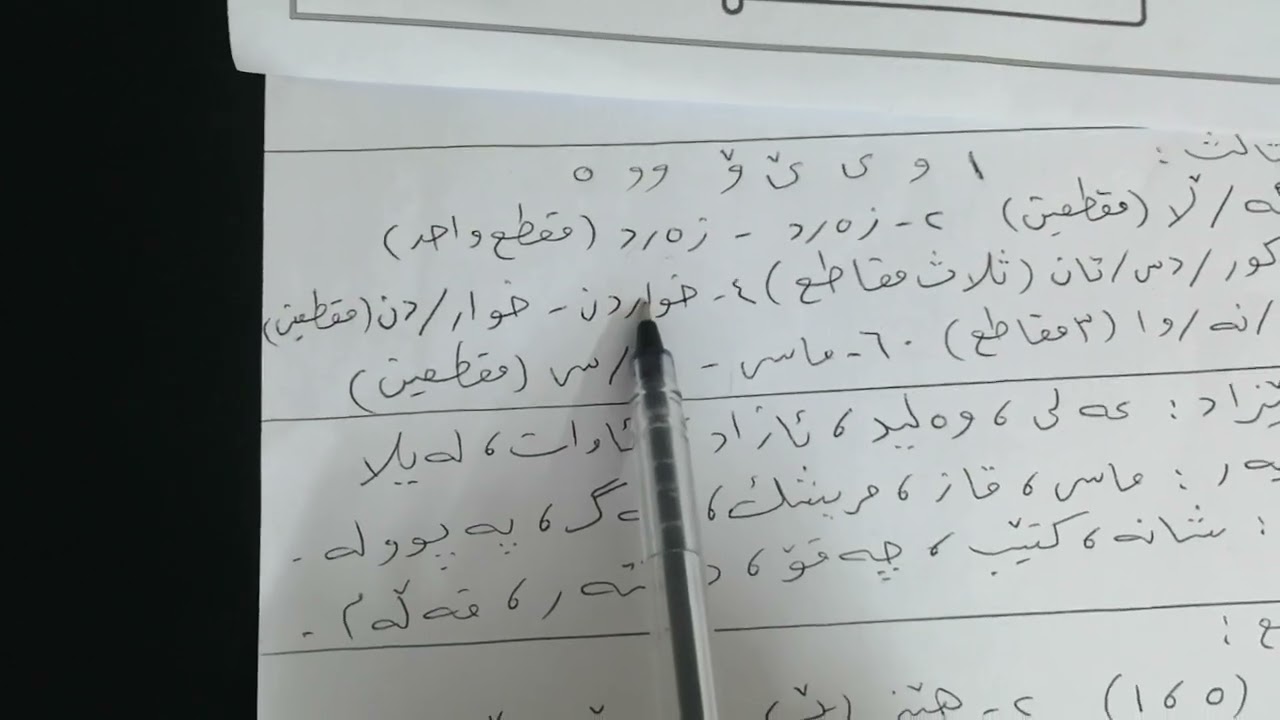 ثالث :
ا و ی ێ ۆ وو ە
ە / ڵا (مقطعين) ٢- زەرد - زەرد (مقطع واحد)
کور / دس / تان (ثلاث مقاطع) ٤- خواردن - خوار / دن (مقطعين)
/ نە / وا (٣ مقاطع) ٦- ماسی - / سی (مقطعين)
: عەلی ، وەلید ، ئازاد ئاوات ، لەیلا
: ماسی ، قاز ، مریشك ، ەگ ، پەپوولە .
: شانە ، کتێب ، چەقۆ ، د تەر ، قەڵەم .
ع :
(١٥٥) ٢-